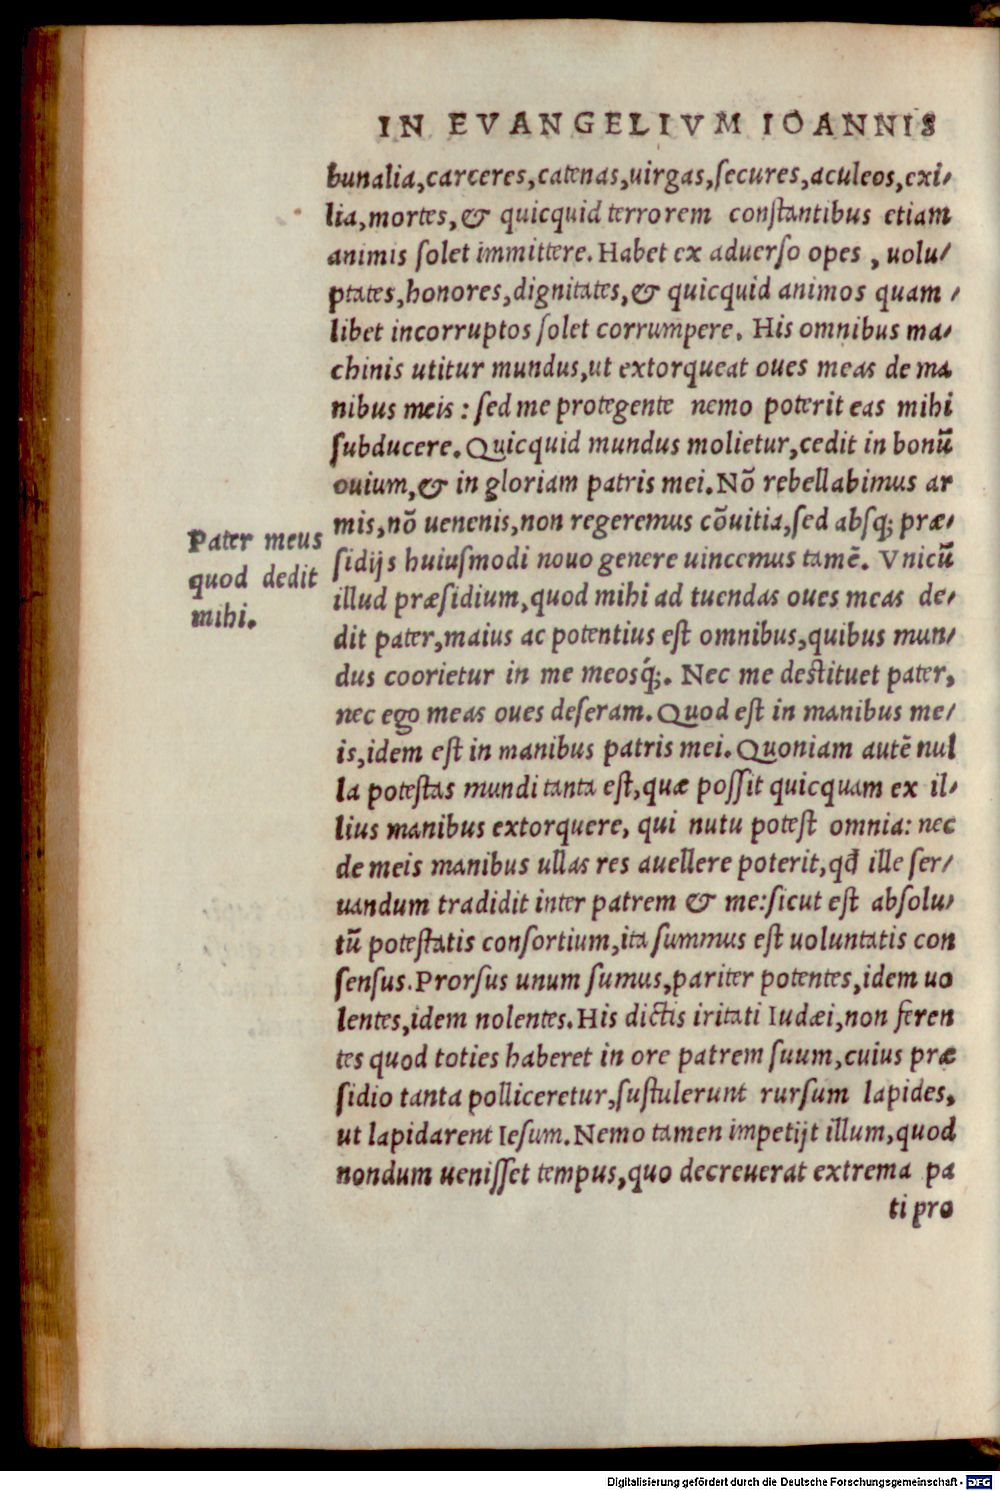 IN EVANGELIVM IOANNIS
bunalia,carceres,catenas,uirgas,secures,aculeos,exi-
lia,mortes,& quicquid terrorem constantibus etiam
animis solet immittere. Habet ex aduerso opes , uolu-
ptates,honores,dignitates,& quicquid animos quam -
libet incorruptos solet corrumpere. His omnibus ma-
chinis utitur mundus,ut extorqueat oues meas de ma
nibus meis : sed me protegente nemo poterit eas mihi
subducere. Quicquid mundus molietur,cedit in bonū
ouium,& in gloriam patris mei. Nō rebellabimus ar
mis,nō uenenis,non regeremus cōuitia,sed absq; præ-
sidijs huiusmodi nouo genere uincemus tamē. Vnicū
illud præsidium,quod mihi ad tuendas oues meas de-
dit pater,maius ac potentius est omnibus,quibus mun-
dus coorietur in me meosq́;. Nec me destituet pater,
nec ego meas oues deseram. Quod est in manibus me-
is,idem est in manibus patris mei. Quoniam autē nul
la potestas mundi tanta est,quæ possit quicquam ex il-
lius manibus extorquere, qui nutu potest omnia: nec
de meis manibus ullas res auellere poterit,qd̄ ille ser-
uandum tradidit inter patrem & me:sicut est absolu-
tū potestatis consortium,ita summus est uoluntatis con
sensus. Prorsus unum sumus,pariter potentes,idem uo
lentes,idem nolentes. His dictis iritati Iudæi,non feren
tes quod toties haberet in ore patrem suum,cuius præ
sidio tanta polliceretur,sustulerunt rursum lapides,
ut lapidarent Iesum. Nemo tamen impetijt illum,quod
nondum uenisset tempus,quo decreuerat extrema pa
ti pro
Pater meus
quod dedit
mihi.
Digitalisierung gefördert durch die Deutsche Forschungsgemeinschaft - DFG